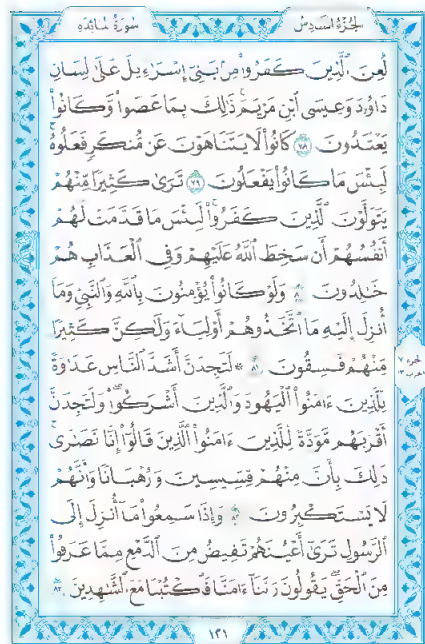 الجزء السادس
سورة المائدة
لُعِنَ ٱلَّذِينَ كَفَرُوا۟ مِنۢ بَنِىٓ إِسْرَٰٓءِيلَ عَلَىٰ لِسَانِ
دَاوُۥدَ وَعِيسَى ٱبْنِ مَرْيَمَ ۚ ذَٰلِكَ بِمَا عَصَوا۟ وَّكَانُوا۟
يَعْتَدُونَ ٧٨ كَانُوا۟ لَا يَتَنَاهَوْنَ عَن مُّنكَرٍ فَعَلُوهُ ۚ
لَبِئْسَ مَا كَانُوا۟ يَفْعَلُونَ ٧٩ تَرَىٰ كَثِيرًا مِّنْهُمْ
يَتَوَلَّوْنَ ٱلَّذِينَ كَفَرُوا۟ ۚ لَبِئْسَ مَا قَدَّمَتْ لَهُمْ
أَنفُسُهُمْ أَن سَخِطَ ٱللَّهُ عَلَيْهِمْ وَفِى ٱلْعَذَابِ هُمْ
خَٰلِدُونَ ٨٠ وَلَوْ كَانُوا۟ يُؤْمِنُونَ بِٱللَّهِ وَٱلنَّبِىِّ وَمَآ
أُنزِلَ إِلَيْهِ مَا ٱتَّخَذُوهُمْ أَوْلِيَآءَ وَلَٰكِنَّ كَثِيرًا
مِّنْهُمْ فَٰسِقُونَ ٨١ ۞ لَتَجِدَنَّ أَشَدَّ ٱلنَّاسِ عَدَٰوَةً
لِّلَّذِينَ ءَامَنُوا۟ ٱلْيَهُودَ وَٱلَّذِينَ أَشْرَكُوا۟ ۖ وَلَتَجِدَنَّ
أَقْرَبَهُم مَّوَدَّةً لِّلَّذِينَ ءَامَنُوا۟ ٱلَّذِينَ قَالُوٓا۟ إِنَّا نَصَٰرَىٰ ۚ
ذَٰلِكَ بِأَنَّ مِنْهُمْ قِسِّيسِينَ وَرُهْبَانًا وَأَنَّهُمْ
لَا يَسْتَكْبِرُونَ ٨٢ وَإِذَا سَمِعُوا۟ مَآ أُنزِلَ إِلَى
ٱلرَّسُولِ تَرَىٰٓ أَعْيُنَهُمْ تَفِيضُ مِنَ ٱلدَّمْعِ مِمَّا عَرَفُوا۟
مِنَ ٱلْحَقِّ ۖ يَقُولُونَ رَبَّنَآ ءَامَنَّا فَٱكْتُبْنَا مَعَ ٱلشَّٰهِدِينَ ٨٣
الجزء ٧
الحزب ١٣
١٢١